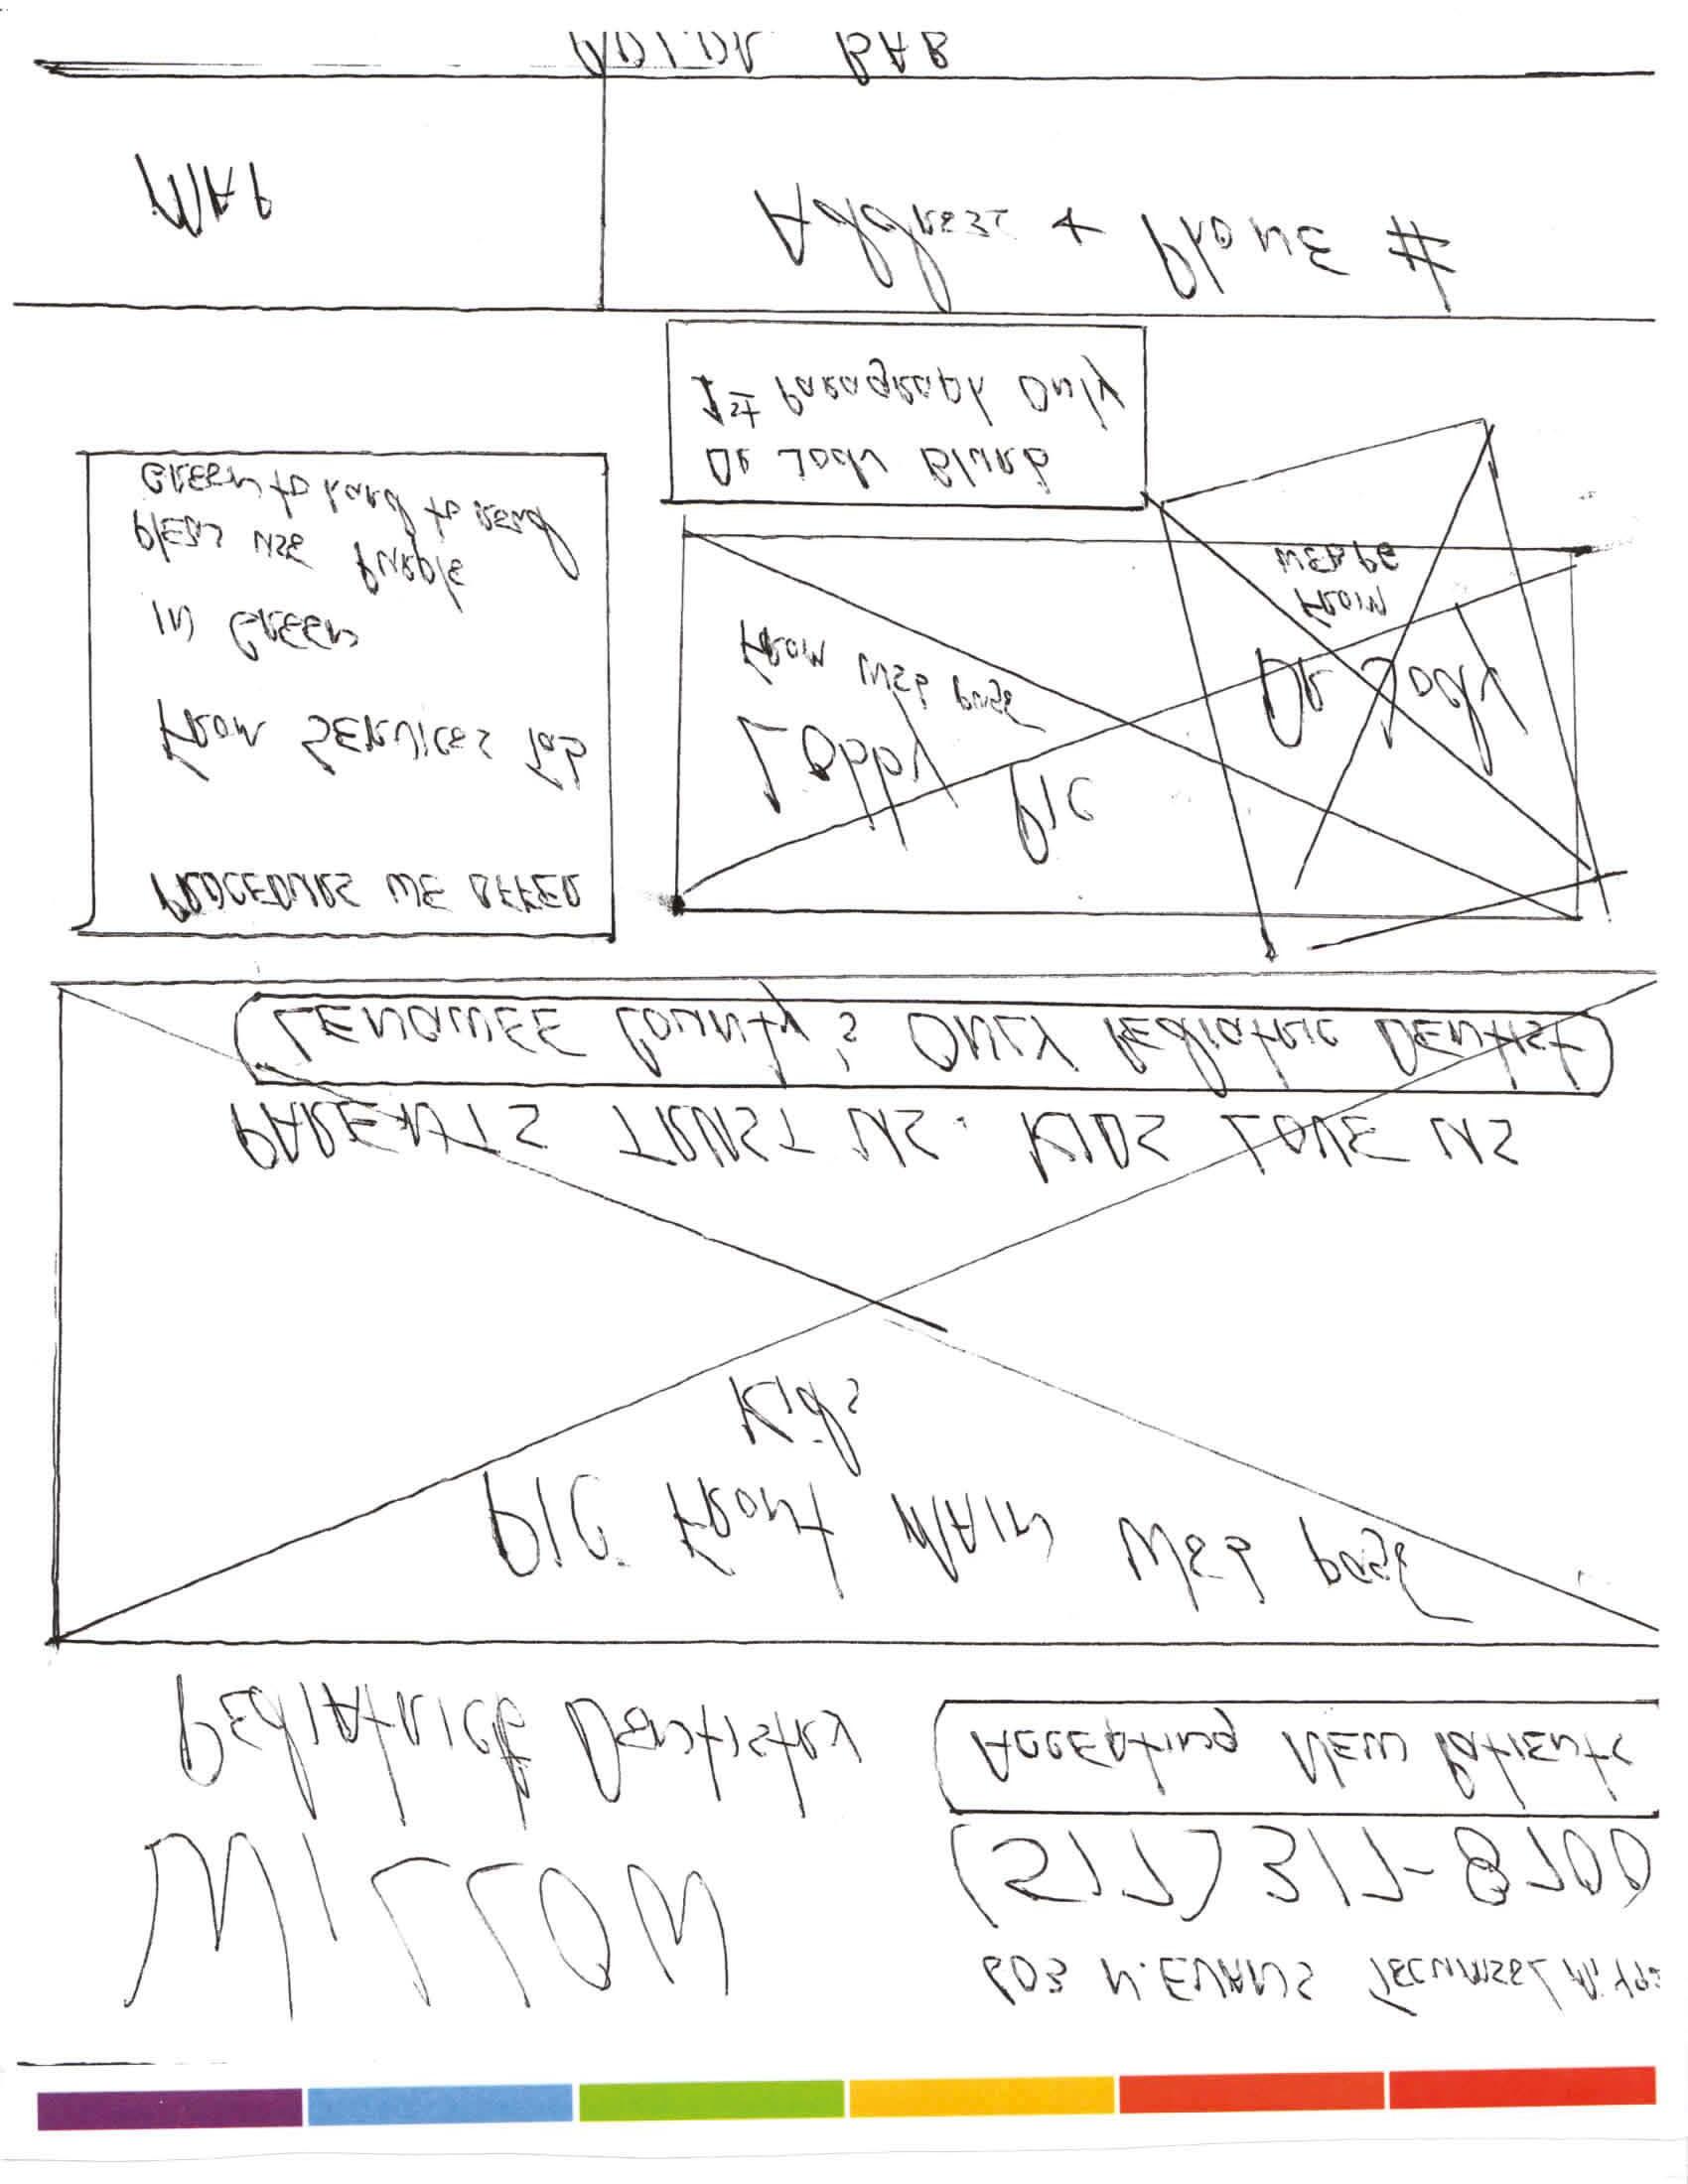 603 N. EVANS TECUMSEH Mi.
MILLOM
(517) 317-8700
PEDIATRIC DENTISTRY
ACCEPTING NEW PATIENTS
PIC. FRONT MAIN WEB page
Kids
PARENTS TRUST US. KIDS LOVE US
LENAWEE County's ONLY Pediatric DENTIST
PROCEDURS WE OFFER
FROM SERVICES Tab
IN GREEN
pleas use Purple
GREEN to hard to read
Lobby PIC
From WEB page
DR Jody
FROM
WEBPG
DR Jody Blurb
1st Paragraph Only
MAP
Address + Phone #
COLOR BAR